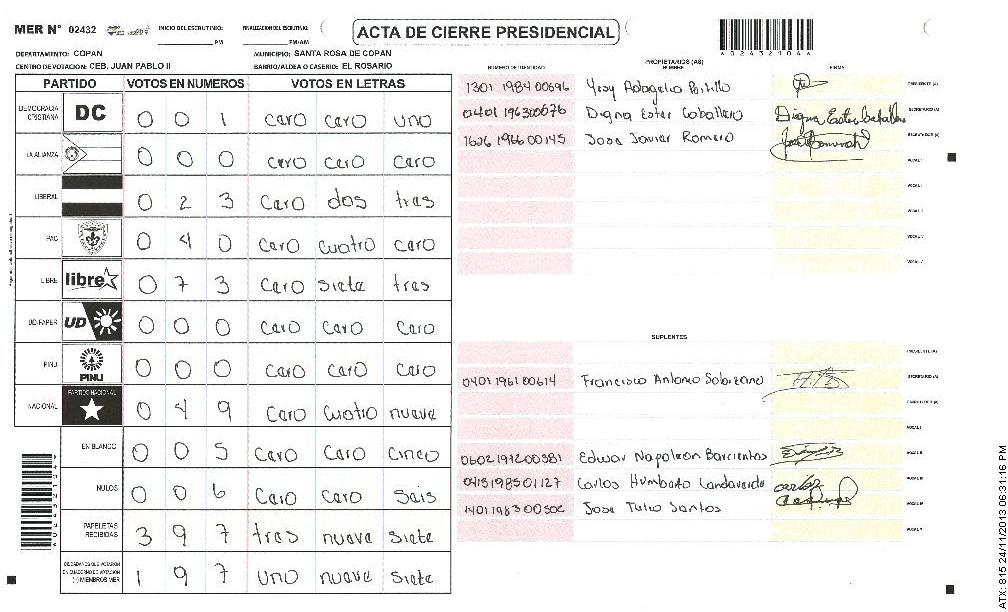 MER Nº 02432 INICIO DEL ESCRUTINIO: FINALIZACION DEL ESCRUTINIO:
PM PM/AM
ACTA DE CIERRE PRESIDENCIAL
DEPARTAMENTO: COPAN MUNICIPIO: SANTA ROSA DE COPAN
CENTRO DE VOTACION: CEB. JUAN PABLO II BARRIO/ALDEA O CASERIO: EL ROSARIO
PARTIDO VOTOS EN NUMEROS VOTOS EN LETRAS
DEMOCRACIA CRISTIANA DC 0 0 1 caro caro uno
LA ALIANZA 0 0 0 caro caro caro
LIBERAL 0 2 3 caro dos tras
PAC 0 4 0 caro cuatro caro
LIBRE libre 0 7 3 caro siete tras
UD-FAPER UD 0 0 0 caro caro caro
PINU PINU 0 0 0 caro caro caro
NACIONAL PARTIDO NACIONAL 0 4 9 caro cuatro nueve
EN BLANCO 0 0 5 caro caro cinco
NULOS 0 0 6 caro caro sais
PAPELETAS RECIBIDAS 3 9 7 tras nueve siete
CIUDADANOS QUE VOTARON EN CUADERNO DE VOTACION (+) MIEMBROS MER 1 9 7 uno nueve siete
PROPIETARIOS (AS)
NUMERO DE IDENTIDAD NOMBRE FIRMA
1301 1984 00696 PRESIDENTE (A)
0401 196300076 Digna Ester Caballero Digna Ester Caballero SECRETARIO (A)
1626 1966 00145 Jose Javier Romero ESCRUTADOR (A)
VOCAL I
VOCAL II
VOCAL IV
VOCAL V
SUPLENTES
PRESIDENTE (A)
0401 1961 00614 Francisco Antonio SECRETARIO (A)
ESCRUTADOR (A)
VOCAL I
0602197200381 Edwar Napoleon Barcientos VOCAL II
0413198501127 Carlos Humberto carlos VOCAL III
1401 1983 00502 Jose Tulio Santos VOCAL IV
VOCAL V
ATX: 815 24/11/2013 06:31:16 PM